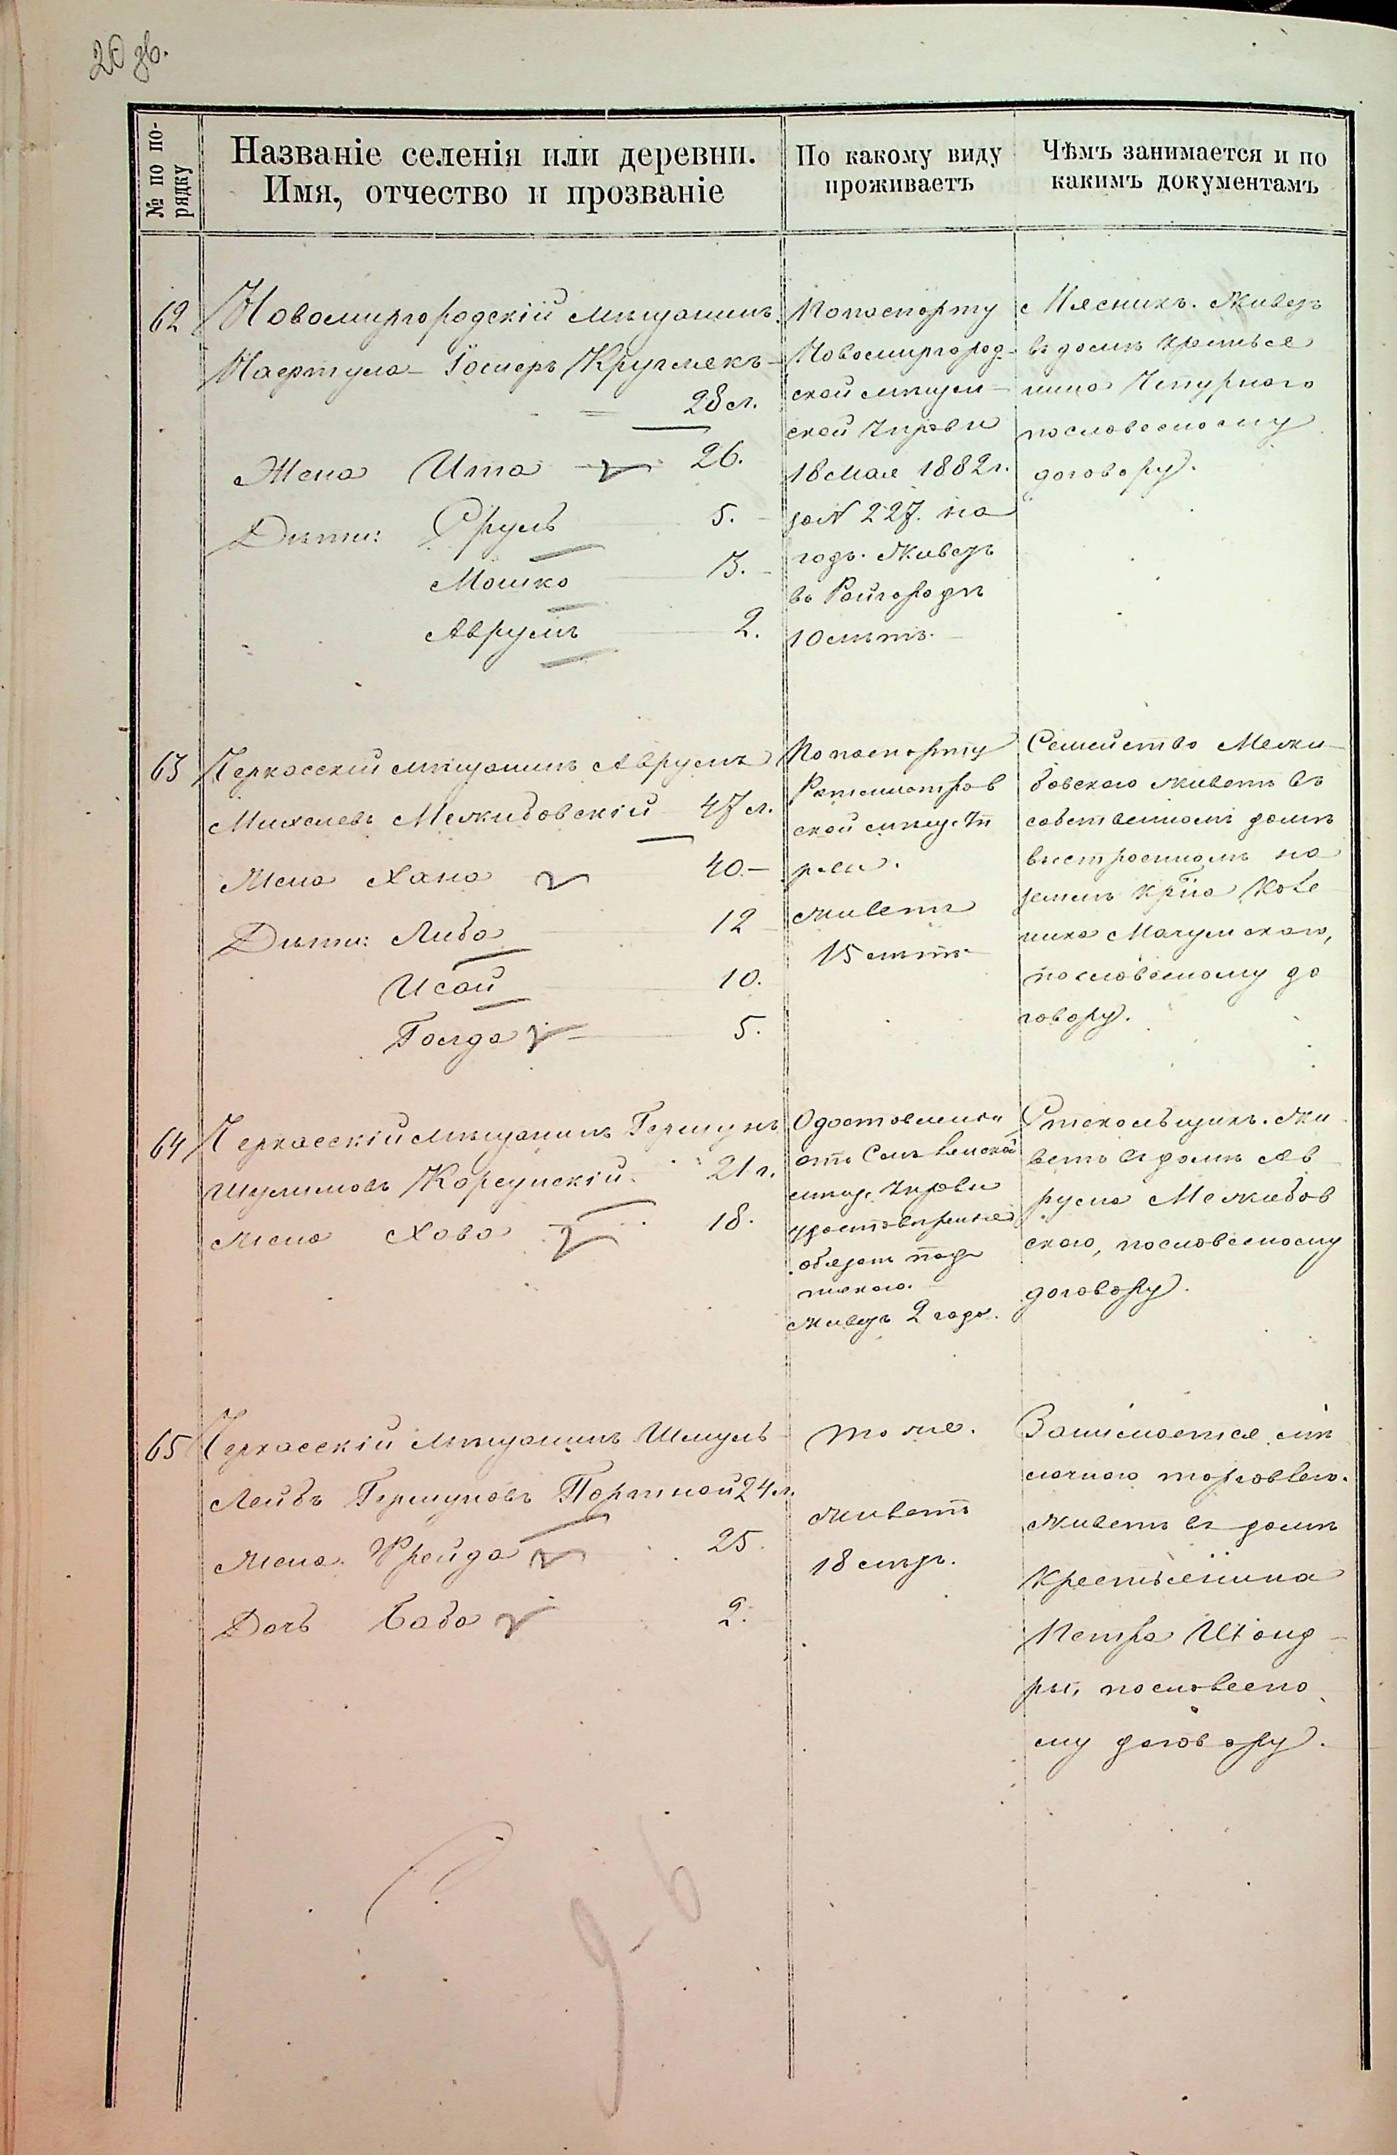 20 зв.
№ по по-
рядку
Названіе селенія или деревни.
Имя, отчество и прозваніе
По какому виду
проживаетъ
Чѣмъ занимается и по
какимъ документамъ
62
Новомиргородскій мѣщанинъ
Круглякъ
28 л.
Жена Ита 26.
Дѣти: Сруль 5.
Мошко 3.
Аврумъ 2.
По паспорту
Новомиргород-
ской мѣщан-
ской Упровы
18 Мая 1882 г.
за N 227. на
годъ. Живетъ
въ Райгородѣ
10 лѣтъ.
Мясникъ. Живетъ
въ домѣ крестья
нина Чепурного
по словесному
договору.
63
Черкасскій мѣщанинъ Аврумъ
Михелевъ Межибовскій 47 л.
Жена Хана 40.
Дѣти: Либа 12
Исай 10.
Голда 5.
По паспорту
Ротмистров
ской мѣщ. Уп
равы.
живетъ
15 лѣтъ
Семейство Межи-
бовского живетъ въ
собственномъ домѣ
выстроенномъ на
землѣ кр-на
по словесному до
говору.
64
Черкасскій мѣщанинъ Гершунъ
Шулимовъ Корсунскій. 21 г.
Жена Хова 18.
отъ
мѣщ. Упровы
живетъ 2 года.
Стекольщикъ. Жи
ветъ въ домѣ Ав
рума Межибов
ского, по словесному
договору.
65
Черкасскій мѣщанинъ Шмуль
Лейбъ Гершуновъ Портной 24 л.
Жена Фрейда 25.
Дочь Баба 2.
тоже.
живетъ
18 лѣтъ.
Занимается мѣ
лочною торговлею.
Живетъ въ домѣ
крестьянина
Петра Шконд-
ры, по словесно
му договору.
9-6